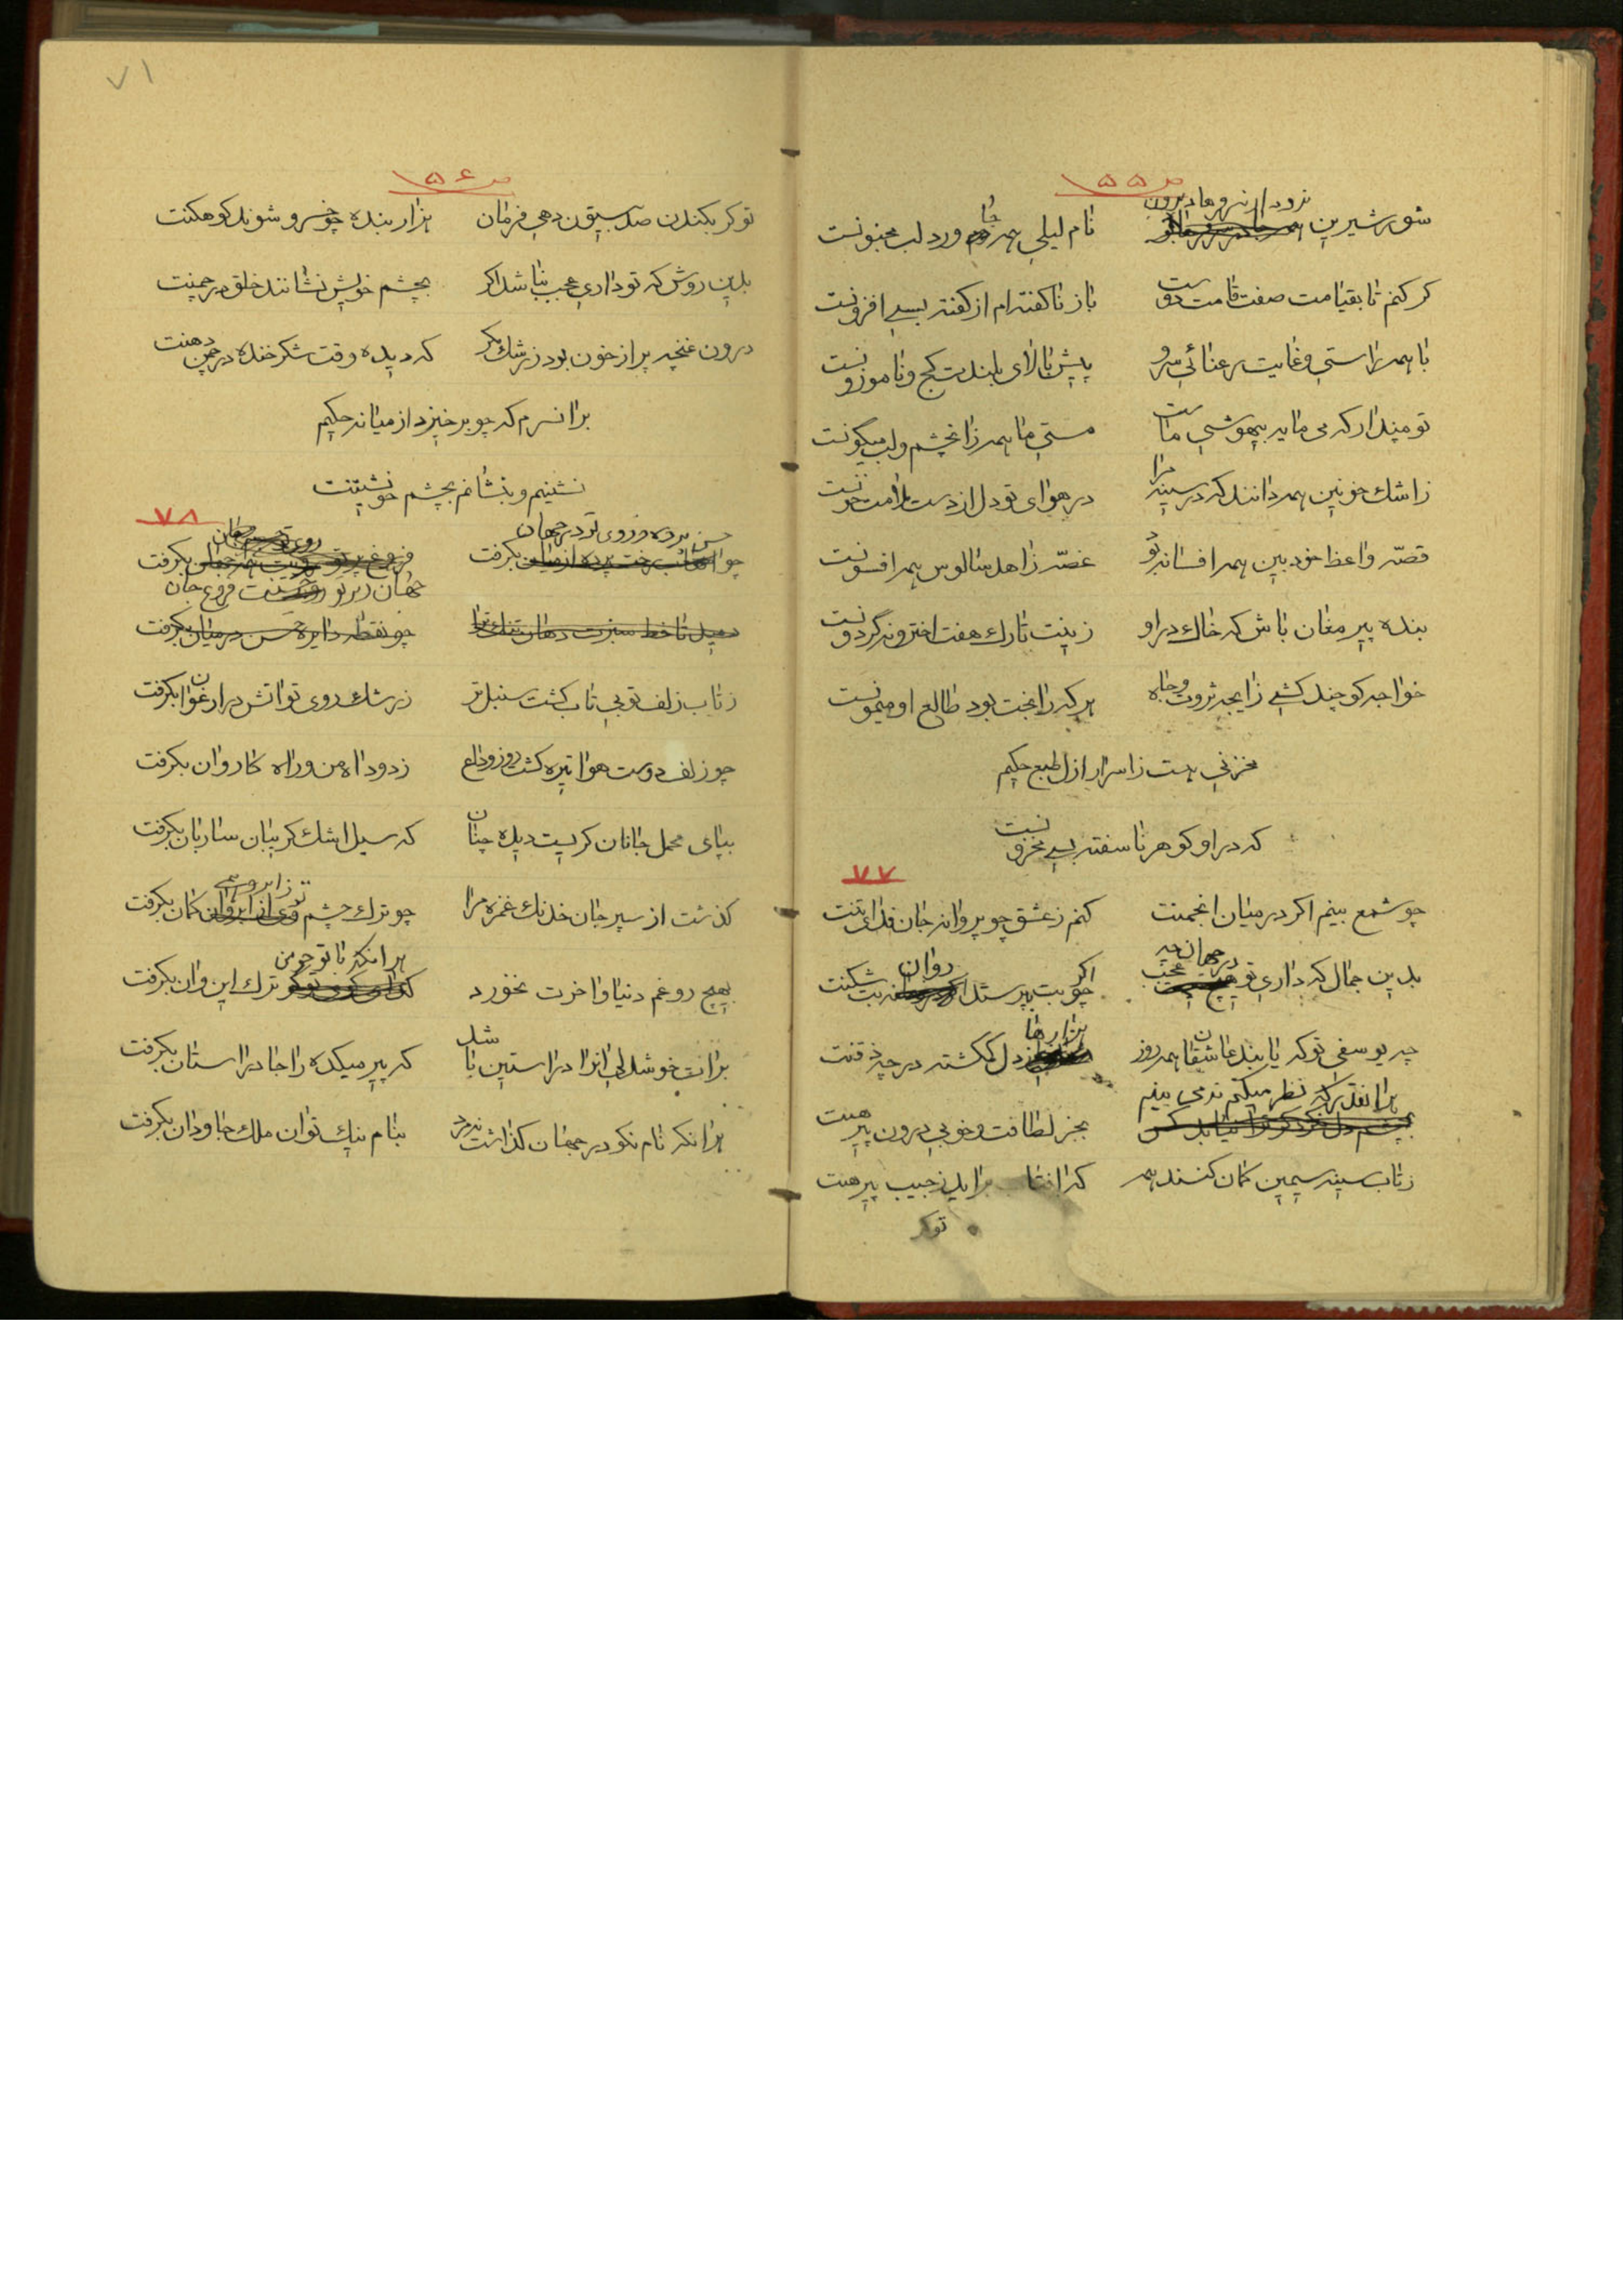 ص ۵۵
نرود از سر فرهاد برون
شور شیرین نام لیلی همه جا ورد لب مجنونست
گر کنم تا بقیامت صفت قامت دوست باز ناگفته ام از گفته بسی افزونست
با همه راستی و غایت رعنائی سرو پیش بالای بلندت کج و ناموزونست
تو مپندار که می مایه بیهوشی ماست مستی ما همه زان چشم و لب میگونست
ز اشک خونین همه دانند که در سینه مرا در هوای تو دل از دست ملامت خونست
قصه واعظ خودبین همه افسانه بود غصه زاهد سالوس همه افسونست
بنده پیر مغان باش که خاک در او زینت تارک هفت اختر و نه گردونست
خواجه گو چند کشی زایجه ثروت و جاه هر که را بخت بود طالع او میمونست
مخزنی هست ز اسرار ازل طبع حکیم
که در او گوهر ناسفته بسی مخزونست
۷۷
چو شمع بینم اگر در میان انجمنت کنم ز عشق چو پروانه جان فدای تنت
در جهان چه عجب
بدین جمال که داری تو اگر چو بت پرستد روان بت شکنت
چه یوسفی تو که یابند عاشقان همه روز هزارها دل گمگشته در چه ذقنت
هر آنقدر که نظر میکنم نمی بینم
بجز لطافت و خوبی درون پیرهنت
ز تاب سینه سیمین گمان کنند همه که آفتاب برآید ز جیب پیرهنت
تو گر
۷۱
ص ۵۶
تو گر بکندن صد بیستون دهی فرمان هزار بنده چو خسرو شوند کوهکنت
بدین روش که تو داری عجب نباشد اگر بچشم خویش نشانند خلق در چمنت
درون غنچه پر از خون بود ز رشک مگر که دیده وقت شکر خنده در چمن دهنت
بر آن سرم که چو برخیزد از میانه حکیم
نشینم و بنشانم بچشم خویشتنت
۷۸
حسن پرده ز روی تو در جهان بگرفت
جهان ز پرتو فروغ جان بگرفت
ندید تا خط سبزت دهان تنگ ترا چو نقطه دایره حسن در میان بگرفت
ز تاب زلف تو بی تاب گشت سنبل تر ز رشک روی تو آتش در ارغوان بگرفت
چو زلف دوست هوا تیره گشت روز وداع ز دود آه من و راه کاروان بگرفت
بپای محمل جانان گریست دیده چنان که سیل اشک گریبان ساربان بگرفت
گذشت از سپر جان خدنگ غمزه مرا چو ترک چشم تو ز ابروی کمان بگرفت
هر آنکه با تو چو من
بهیچ رو غم دنیا و آخرت نخورد ترک این و آن بگرفت
بر آنت خوشدلی آنرا در آستین باشد که پیر میکده را جا در آستان بگرفت
هر آنکه نام نکو در جهان گذاشت نمرد بنام نیک توان ملک جاودان بگرفت